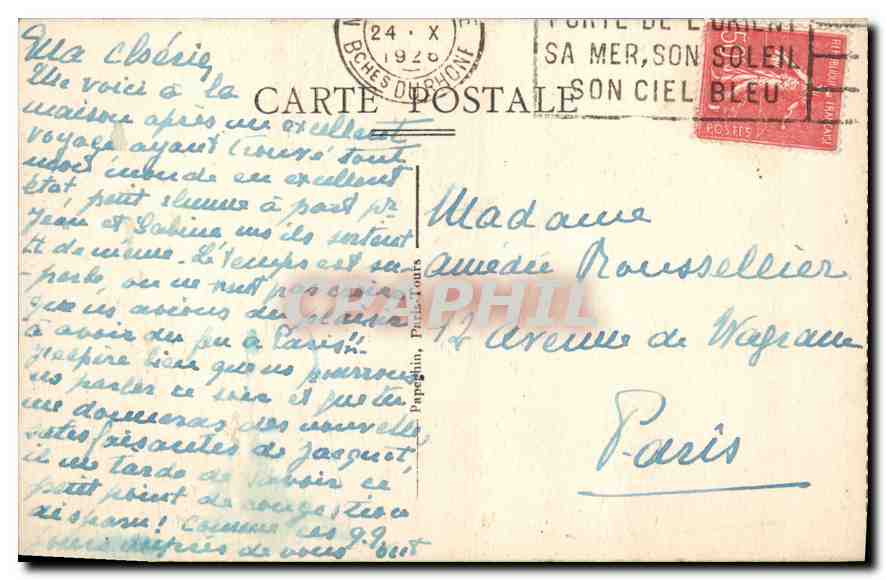 24 . X
1926
BCHES DU RHONE
PORTE DE L'ORIENT
SA MER, SON SOLEIL
SON CIEL BLEU
POSTES
CARTE POSTALE
Ma chérie,
Me voici à la
maison après un excellent
voyage ayant trouvé tout
mon monde en excellent
état, petit rhume à part pr
Jean et Sabine ms ils sortent
qt de même. Le temps est su-
perbe, on ne
que ns avions du plaisir
à avoir du feu à Paris!!
J'espère bien que ns pourrons
ns parler ce soir et que tu
me donneras des nouvelles
satisfaisantes de Jacquot,
il me tarde de savoir ce
petit point de congestion
disparu! Comme ces qq
jours auprès de vous ont
Papeghin, Paris-Tours
CPAPHIL
Madame
Amédée Roussellier
12 Avenue de Wagram
Paris